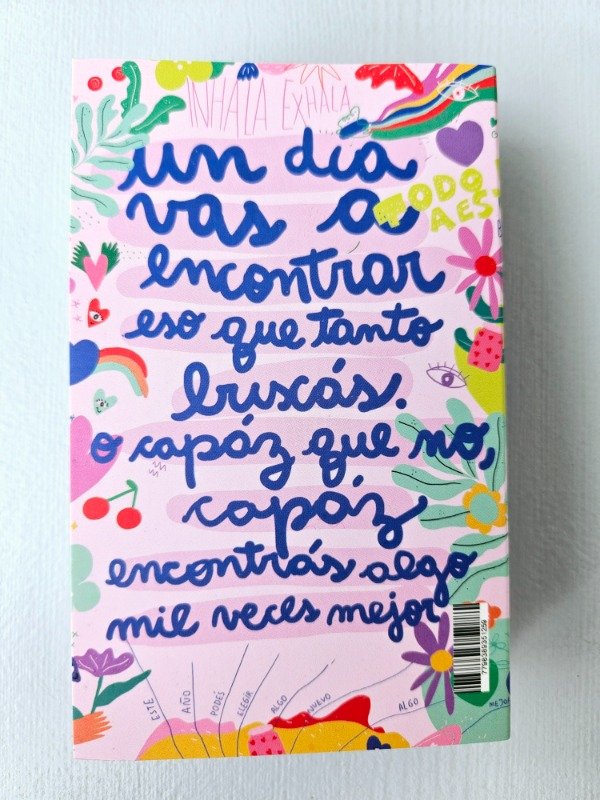 INHALA EXHALA
un día
vas a
TODO
AES
encontrar
eso que tanto
buscás.
o capáz que no,
capáz
encontrás algo
mil veces mejor
ESTE AÑO PODÉS ELEGIR ALGO NUEVO ALGO MEJOR